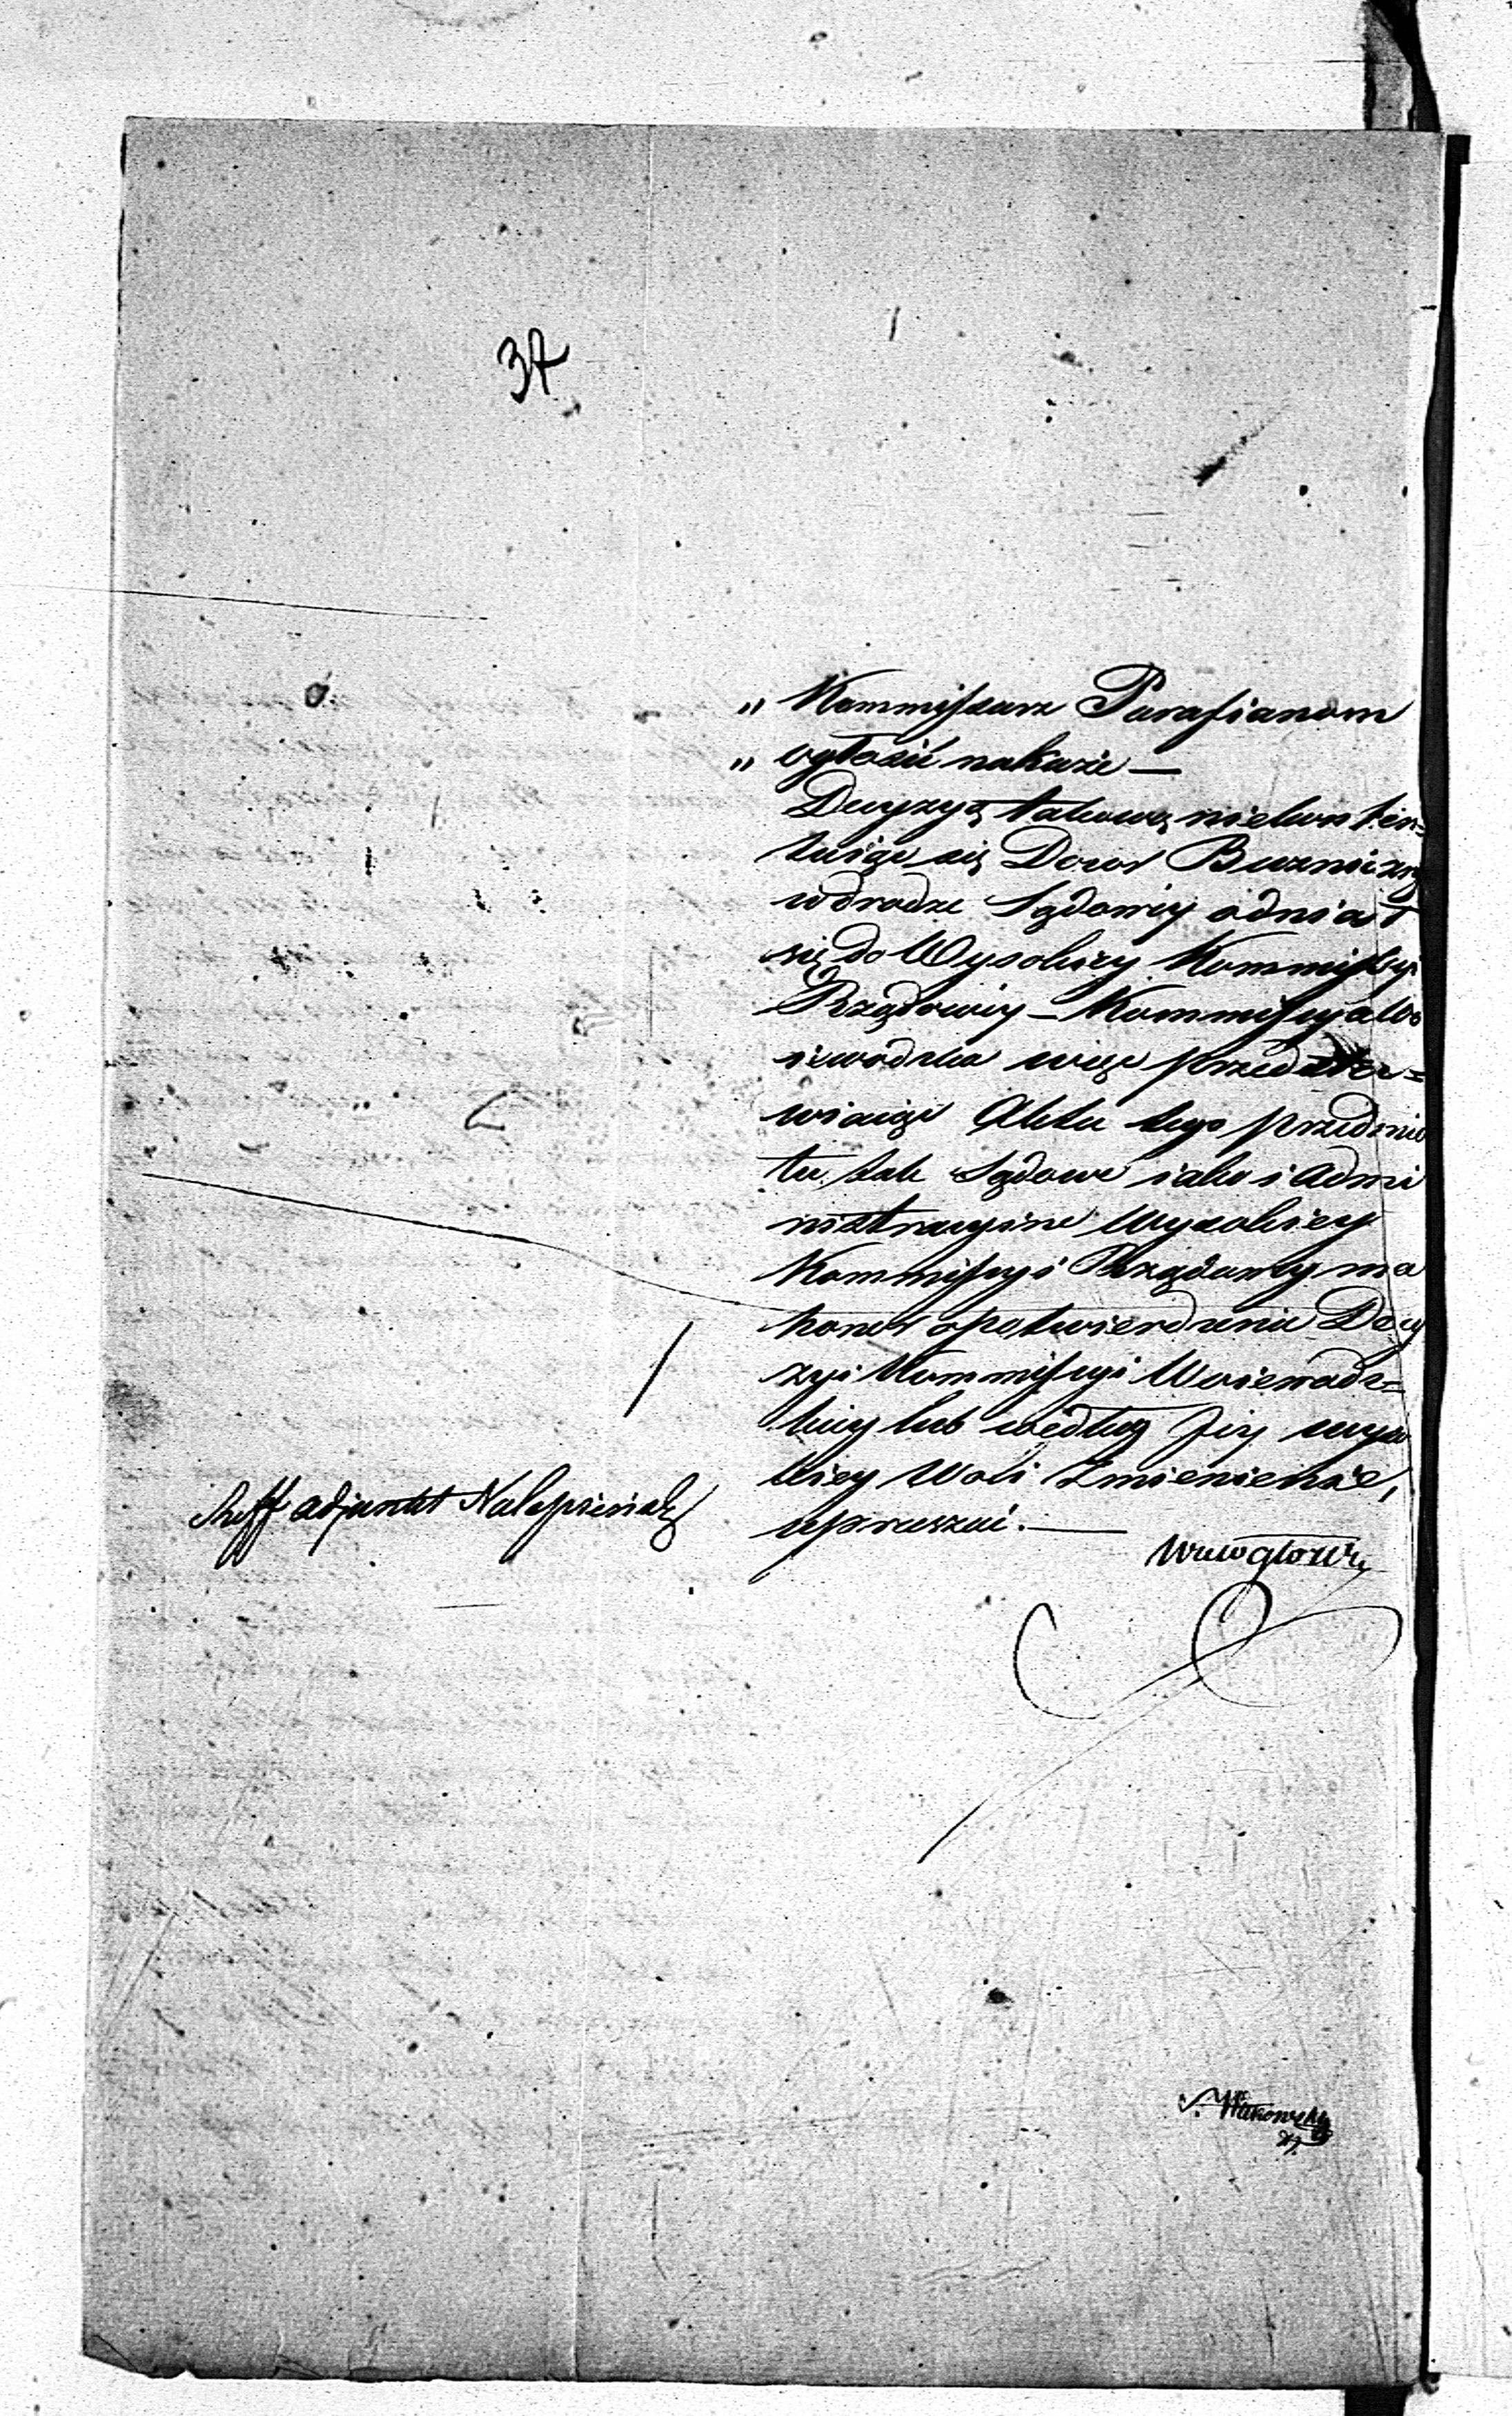 37
„ Kommissarz Parafianom
„ ogłosić nakaże —
Decyzyą takową niekonten=
tuiąc się Dozór Bużniczy
w drodze Sądowey odniosł
się do Wysokiey Kommissyi
Rządowey — Kommissya Wo
iewodzka więc przedsta=
wiaiąc Akta tego przedmio
tu tak Sądowe iako i Admi
nistracyine Wysokiey
Kommissyi Rządowey ma
honor o potwierdzenie Decy
zyi Kommissyi Woiewodz=
kiey lub według Jey wyso
kiey Woli zmienienie,
upraszać. —
Wielogłowski
Reff adjunkt Nalepiński
Witkowski